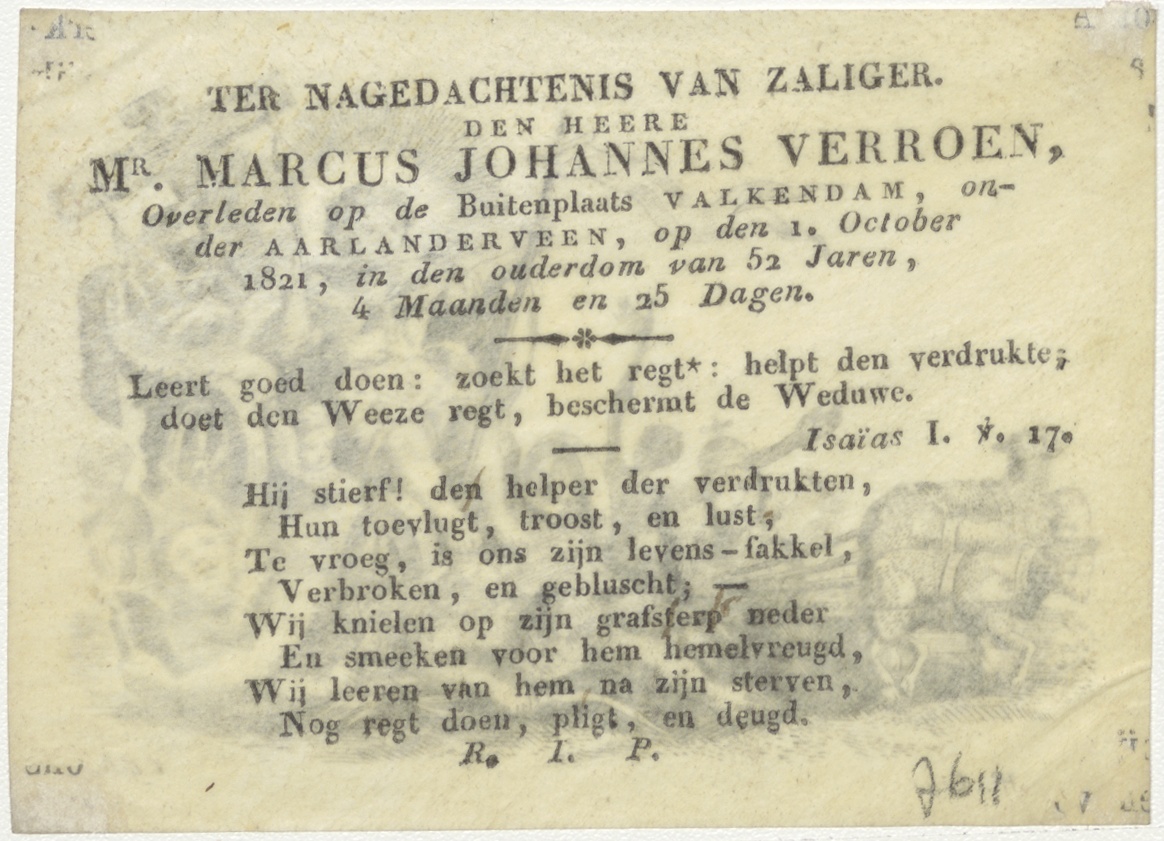 TER NAGEDACHTENIS VAN ZALIGER.
DEN HEERE
MR. MARCUS JOHANNES VERROEN,
Overleden op de Buitenplaats VALKENDAM, on-
der AARLANDERVEEN, op den 1. October
1821, in den ouderdom van 52 Jaren,
4 Maanden en 25 Dagen.
Leert goed doen: zoekt het regt*: helpt den verdrukte;
doet den Weeze regt, beschermt de Weduwe.
Isaïas I. ℣. 17.
Hij stierf! den helper der verdrukten,
Hun toevlugt, troost, en lust;
Te vroeg, is ons zijn levens-fakkel,
Verbroken, en gebluscht; —
Wij knielen op zijn grafsterp neder
En smeeken voor hem hemelvreugd,
Wij leeren van hem na zijn sterven,
Nog regt doen, pligt, en deugd.
R. I. P.